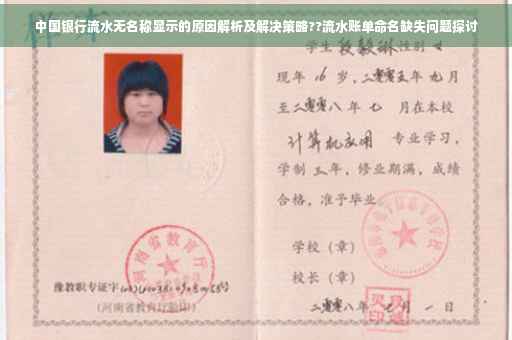 中国银行流水无名称显示的原因解析及解决策略??流水账单命名缺失问题探讨
学生段毅琳性别女
现年16岁，二零零五年九月
至二零零八年七月在本校
计算机应用专业学习，
学制三年，修业期满，成绩
合格，准予毕业
学校（章）
校长（章）
河南省教育厅
豫教职专证字
（河南省教育厅验印）
二零零八年 月一日